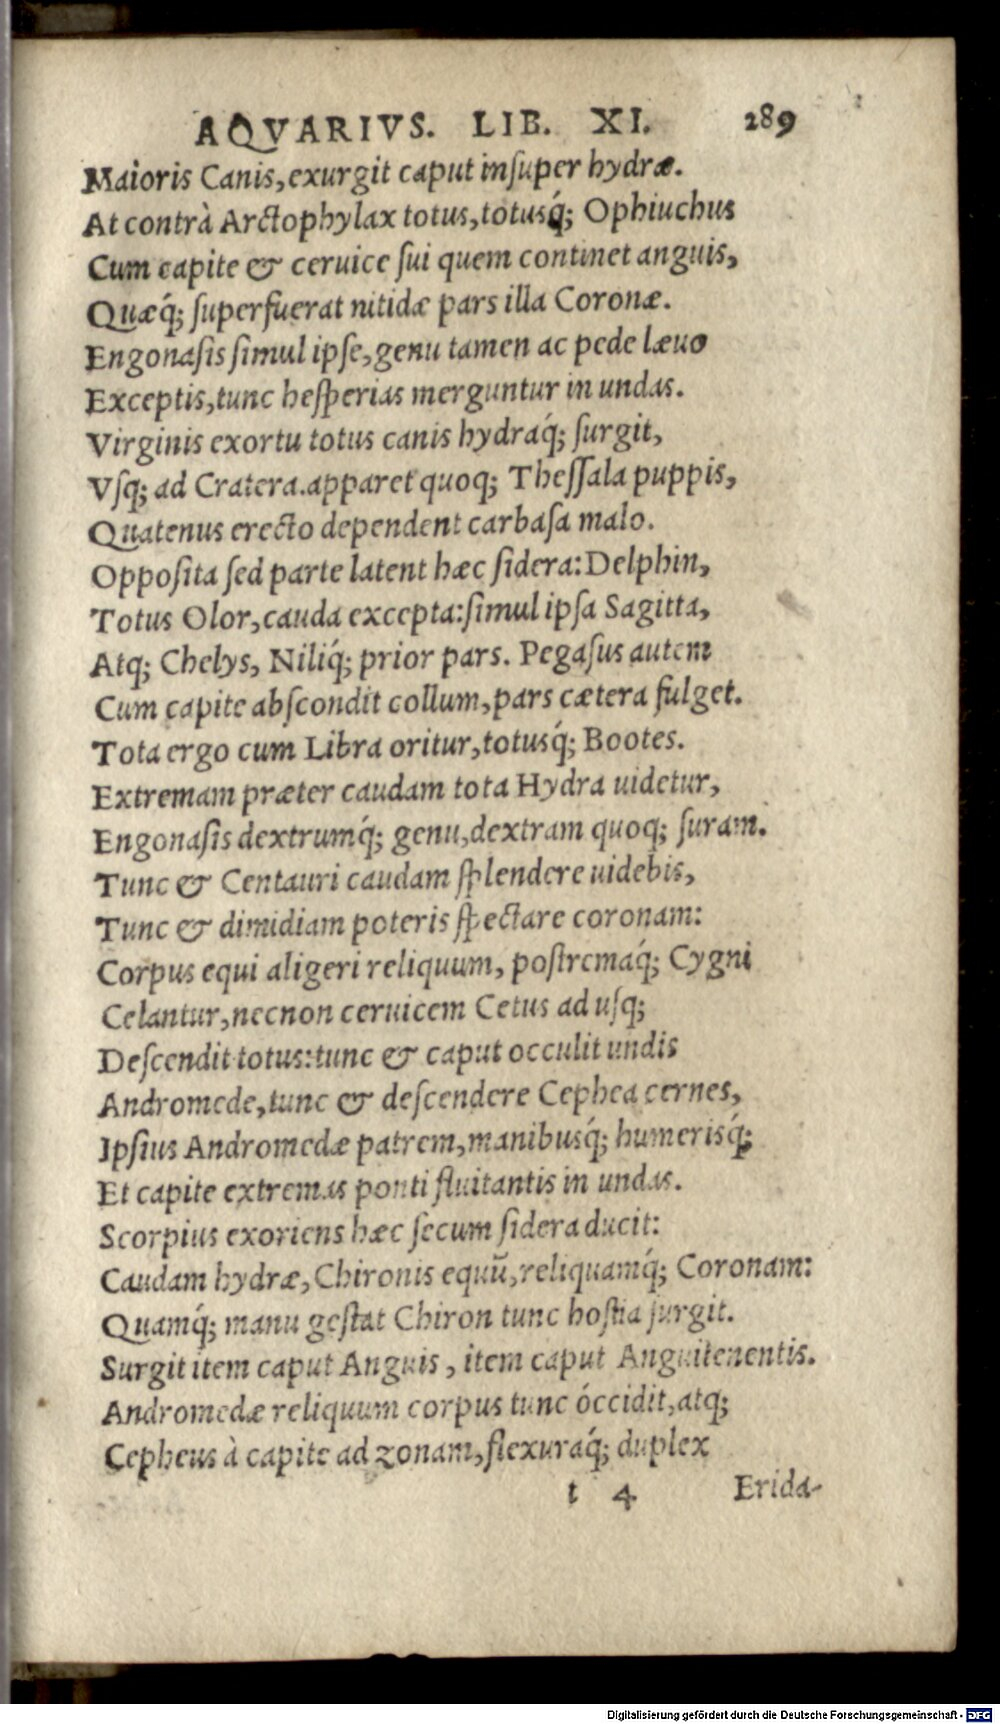 AQVARIVS. LIB. XI. 289
Maioris Canis, exurgit caput inſuper hydræ.
At contrà Arctophylax totus, totusq́; Ophiuchus
Cum capite & ceruice ſui quem continet anguis,
Quæq́; ſuperfuerat nitidæ pars illa Coronæ.
Engonaſis ſimul ipſe, genu tamen ac pede læuo
Exceptis, tunc heſperias merguntur in undas.
Virginis exortu totus canis hydraq́; ſurgit,
Vſq; ad Cratera. apparet quoq; Theſſala puppis,
Quatenus erecto dependent carbaſa malo.
Oppoſita ſed parte latent hæc ſidera: Delphin,
Totus Olor, cauda excepta: ſimul ipſa Sagitta,
Atq; Chelys, Niliq́; prior pars. Pegaſus autem
Cum capite abſcondit collum, pars cætera fulget.
Tota ergo cum Libra oritur, totusq́; Bootes.
Extremam præter caudam tota Hydra uidetur,
Engonaſis dextrumq́; genu, dextram quoq; ſuram.
Tunc & Centauri caudam ſplendere uidebis,
Tunc & dimidiam poteris ſpectare coronam:
Corpus equi aligeri reliquum, poſtremaq́; Cygni
Celantur, necnon ceruicem Cetus ad uſq;
Deſcendit totus: tunc & caput occulit undis
Andromede, tunc & deſcendere Cephea cernes,
Ipſius Andromedæ patrem, manibusq́; humerisq́;
Et capite extremas ponti fluitantis in undas.
Scorpius exoriens hæc ſecum ſidera ducit:
Caudam hydræ, Chironis equũ, reliquamq́; Coronam:
Quamq́; manu geſtat Chiron tunc hoſtia ſurgit.
Surgit item caput Anguis, item caput Anguitenentis.
Andromedæ reliquum corpus tunc óccidit, atq;
Cepheus à capite ad zonam, flexuraq́; duplex
t 4 Erida-
Digitalisierung gefördert durch die Deutsche Forschungsgemeinschaft - DFG